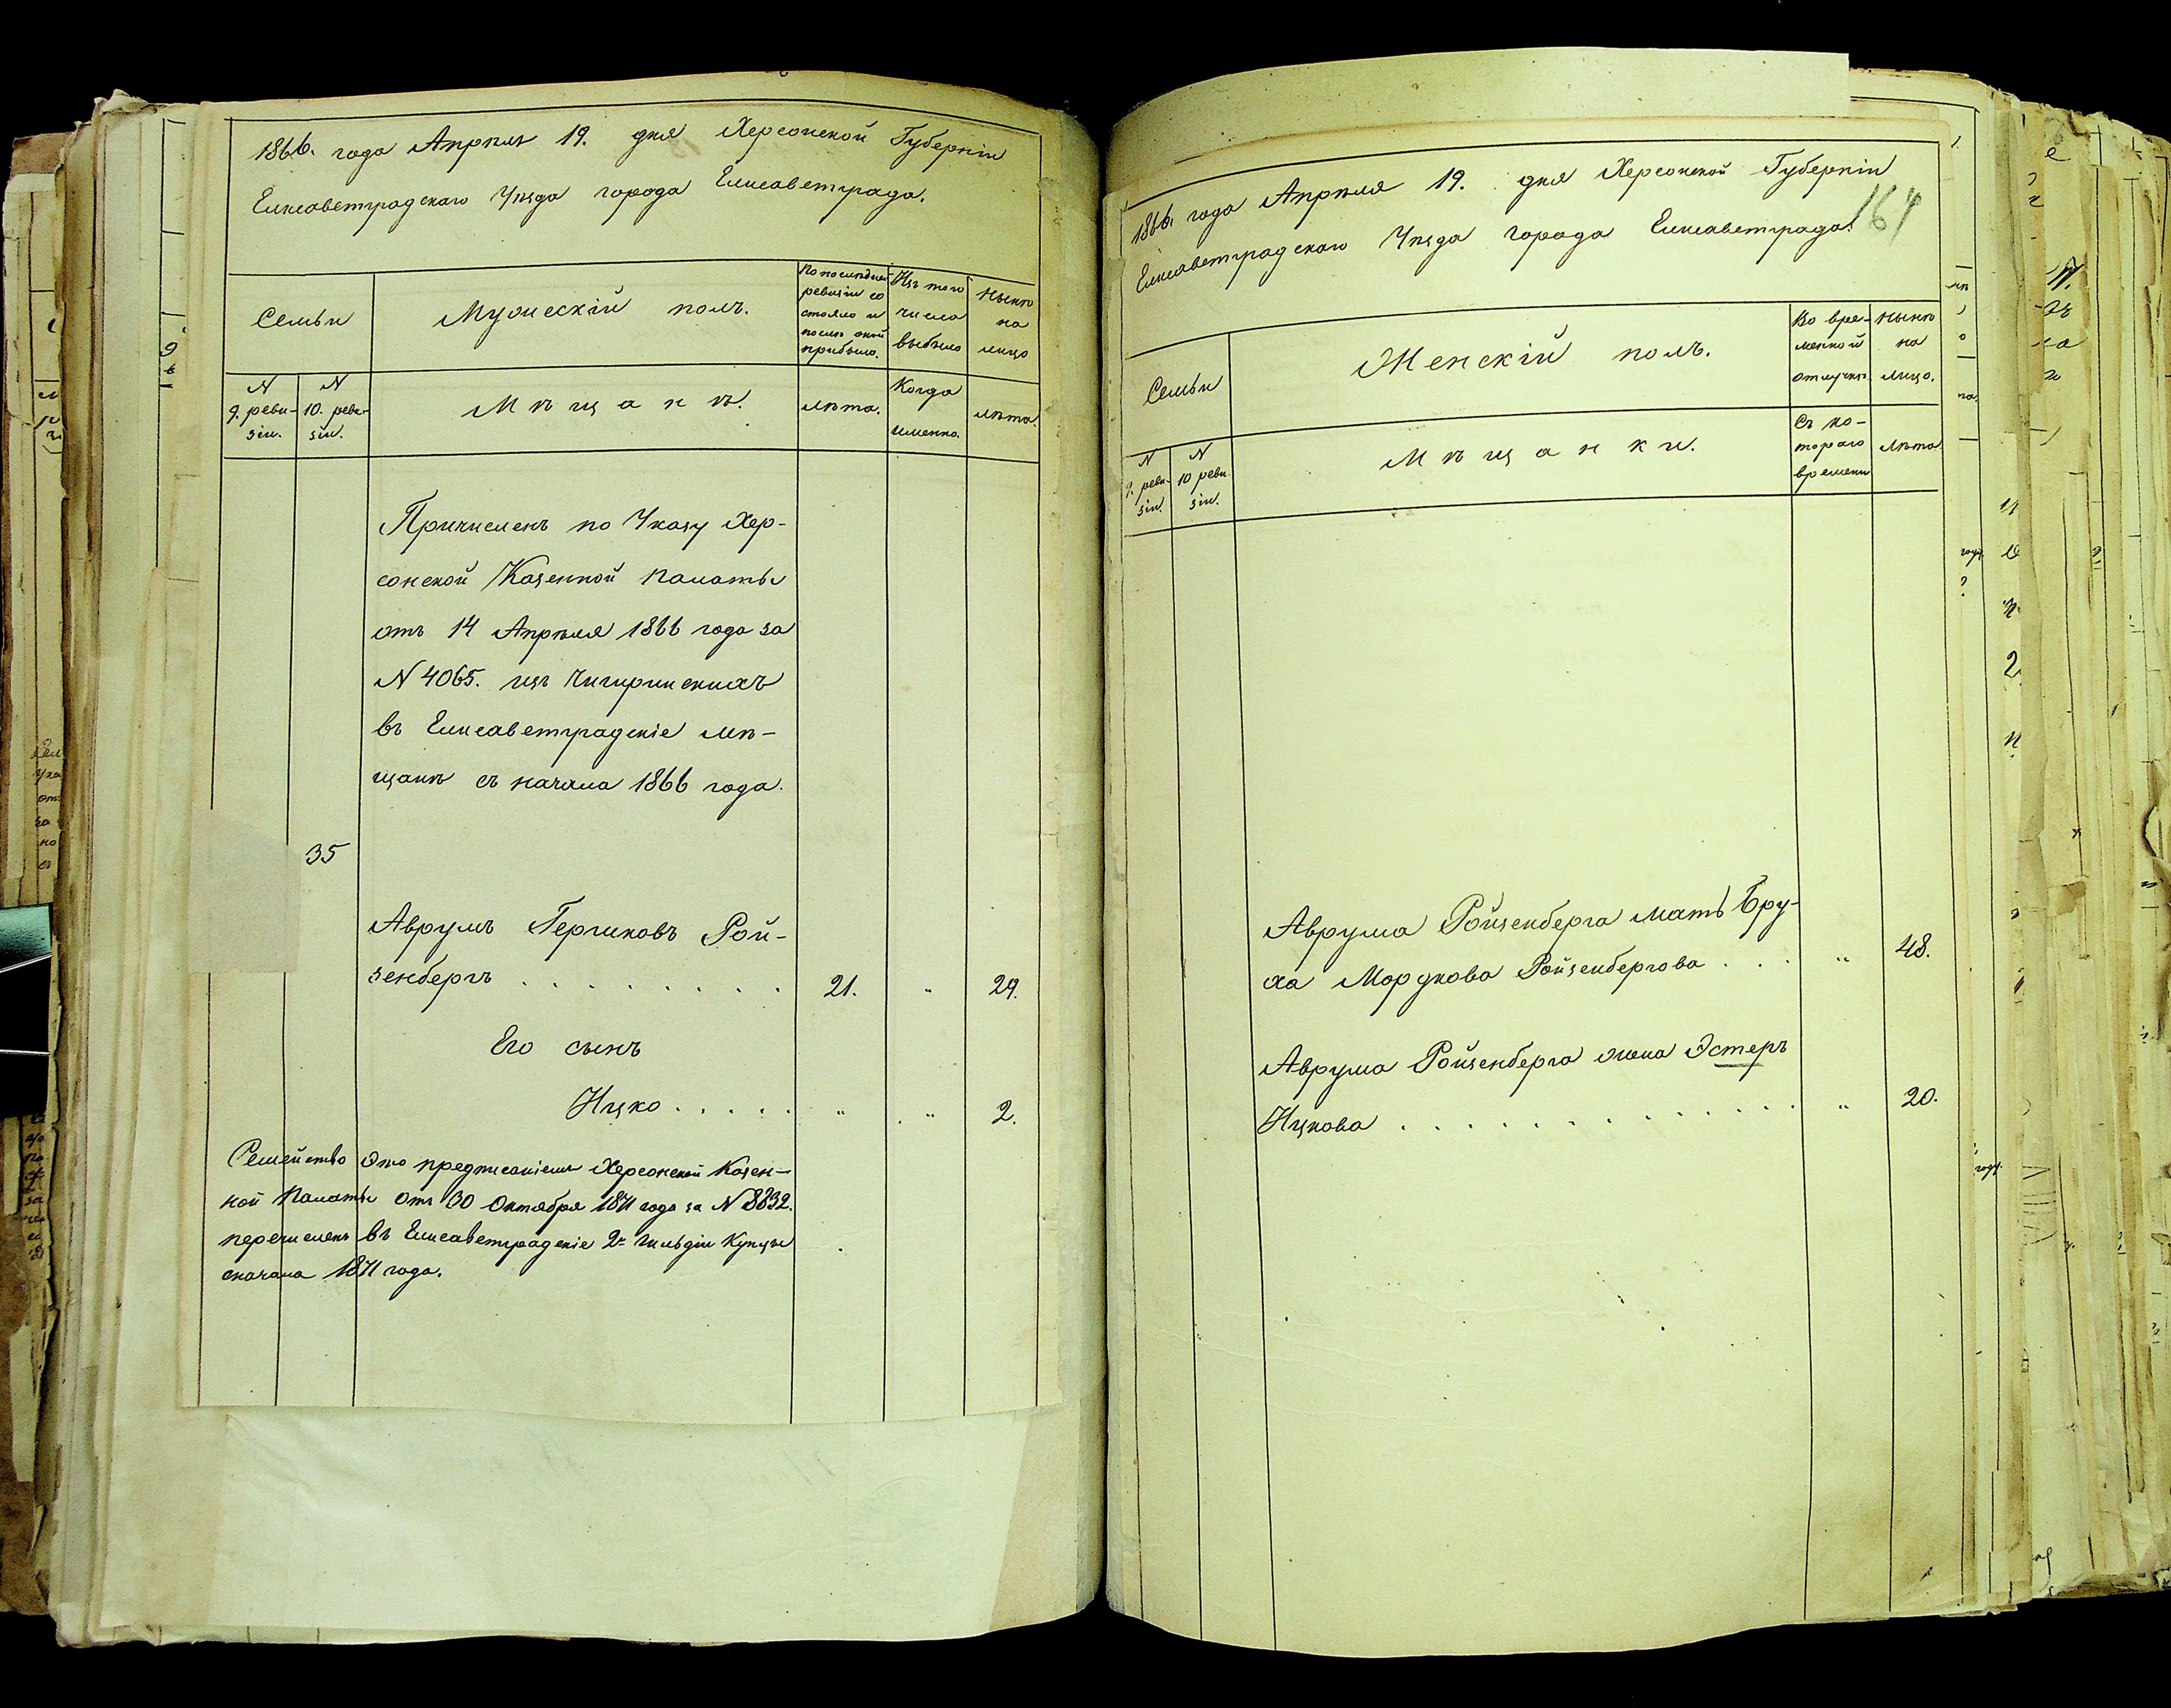 1866. года Апрѣля 19. дня Херсонской Губерніи
Елисаветградскаго Уѣзда города Елисаветграда.
Семьи
Мужескій полъ.
По послѣдней
ревизіи со
стояло и
послѣ оной
прибыло.
Изъ того
числа
выбыло
Нынѣ
на
лицо
N
9. реви-
зіи.
N
10. реви-
зіи.
Мѣщанѣ.
лѣта.
Когда
именно.
лѣта.
Причисленъ по Указу Хер-
сонской Казенной Палаты
отъ 14 Апрѣля 1866 года за
N 4065. изъ Чигиринскихъ
въ Елисаветградскіе мѣ-
щане съ начала 1866 года.
35
Аврумъ Гершковъ Рой-
зенбергъ . . . . . . . . . 21. " 29.
Его сынъ
Ицко . . . . . " " 2.
Семейство это предписаніемъ Херсонской Казен-
ной Палаты отъ 30 Октября 1871 года за N 8832.
перечисленъ въ Елисаветградскіе 2й Гильдіи Купцы
сначала 1871 года.
1866. года Апрѣля 19. дня Херсонской Губерніи
Елисаветградскаго Уѣзда города Елисаветграда.
164
Семьи
Женскій полъ.
Во вре-
менной
отлучкѣ.
Нынѣ
на
лицо.
N
9. реви-
зіи.
N
10 реви-
зіи.
Мѣщанки.
Съ ко-
тораго
времени
лѣта
Аврума Ройзенберга мать Бру-
ха Мордкова Ройзенбергова . . . " 48.
Аврума Ройзенберга жена Эстеръ
Ицкова . . . . . . . . . . . . . " 20.